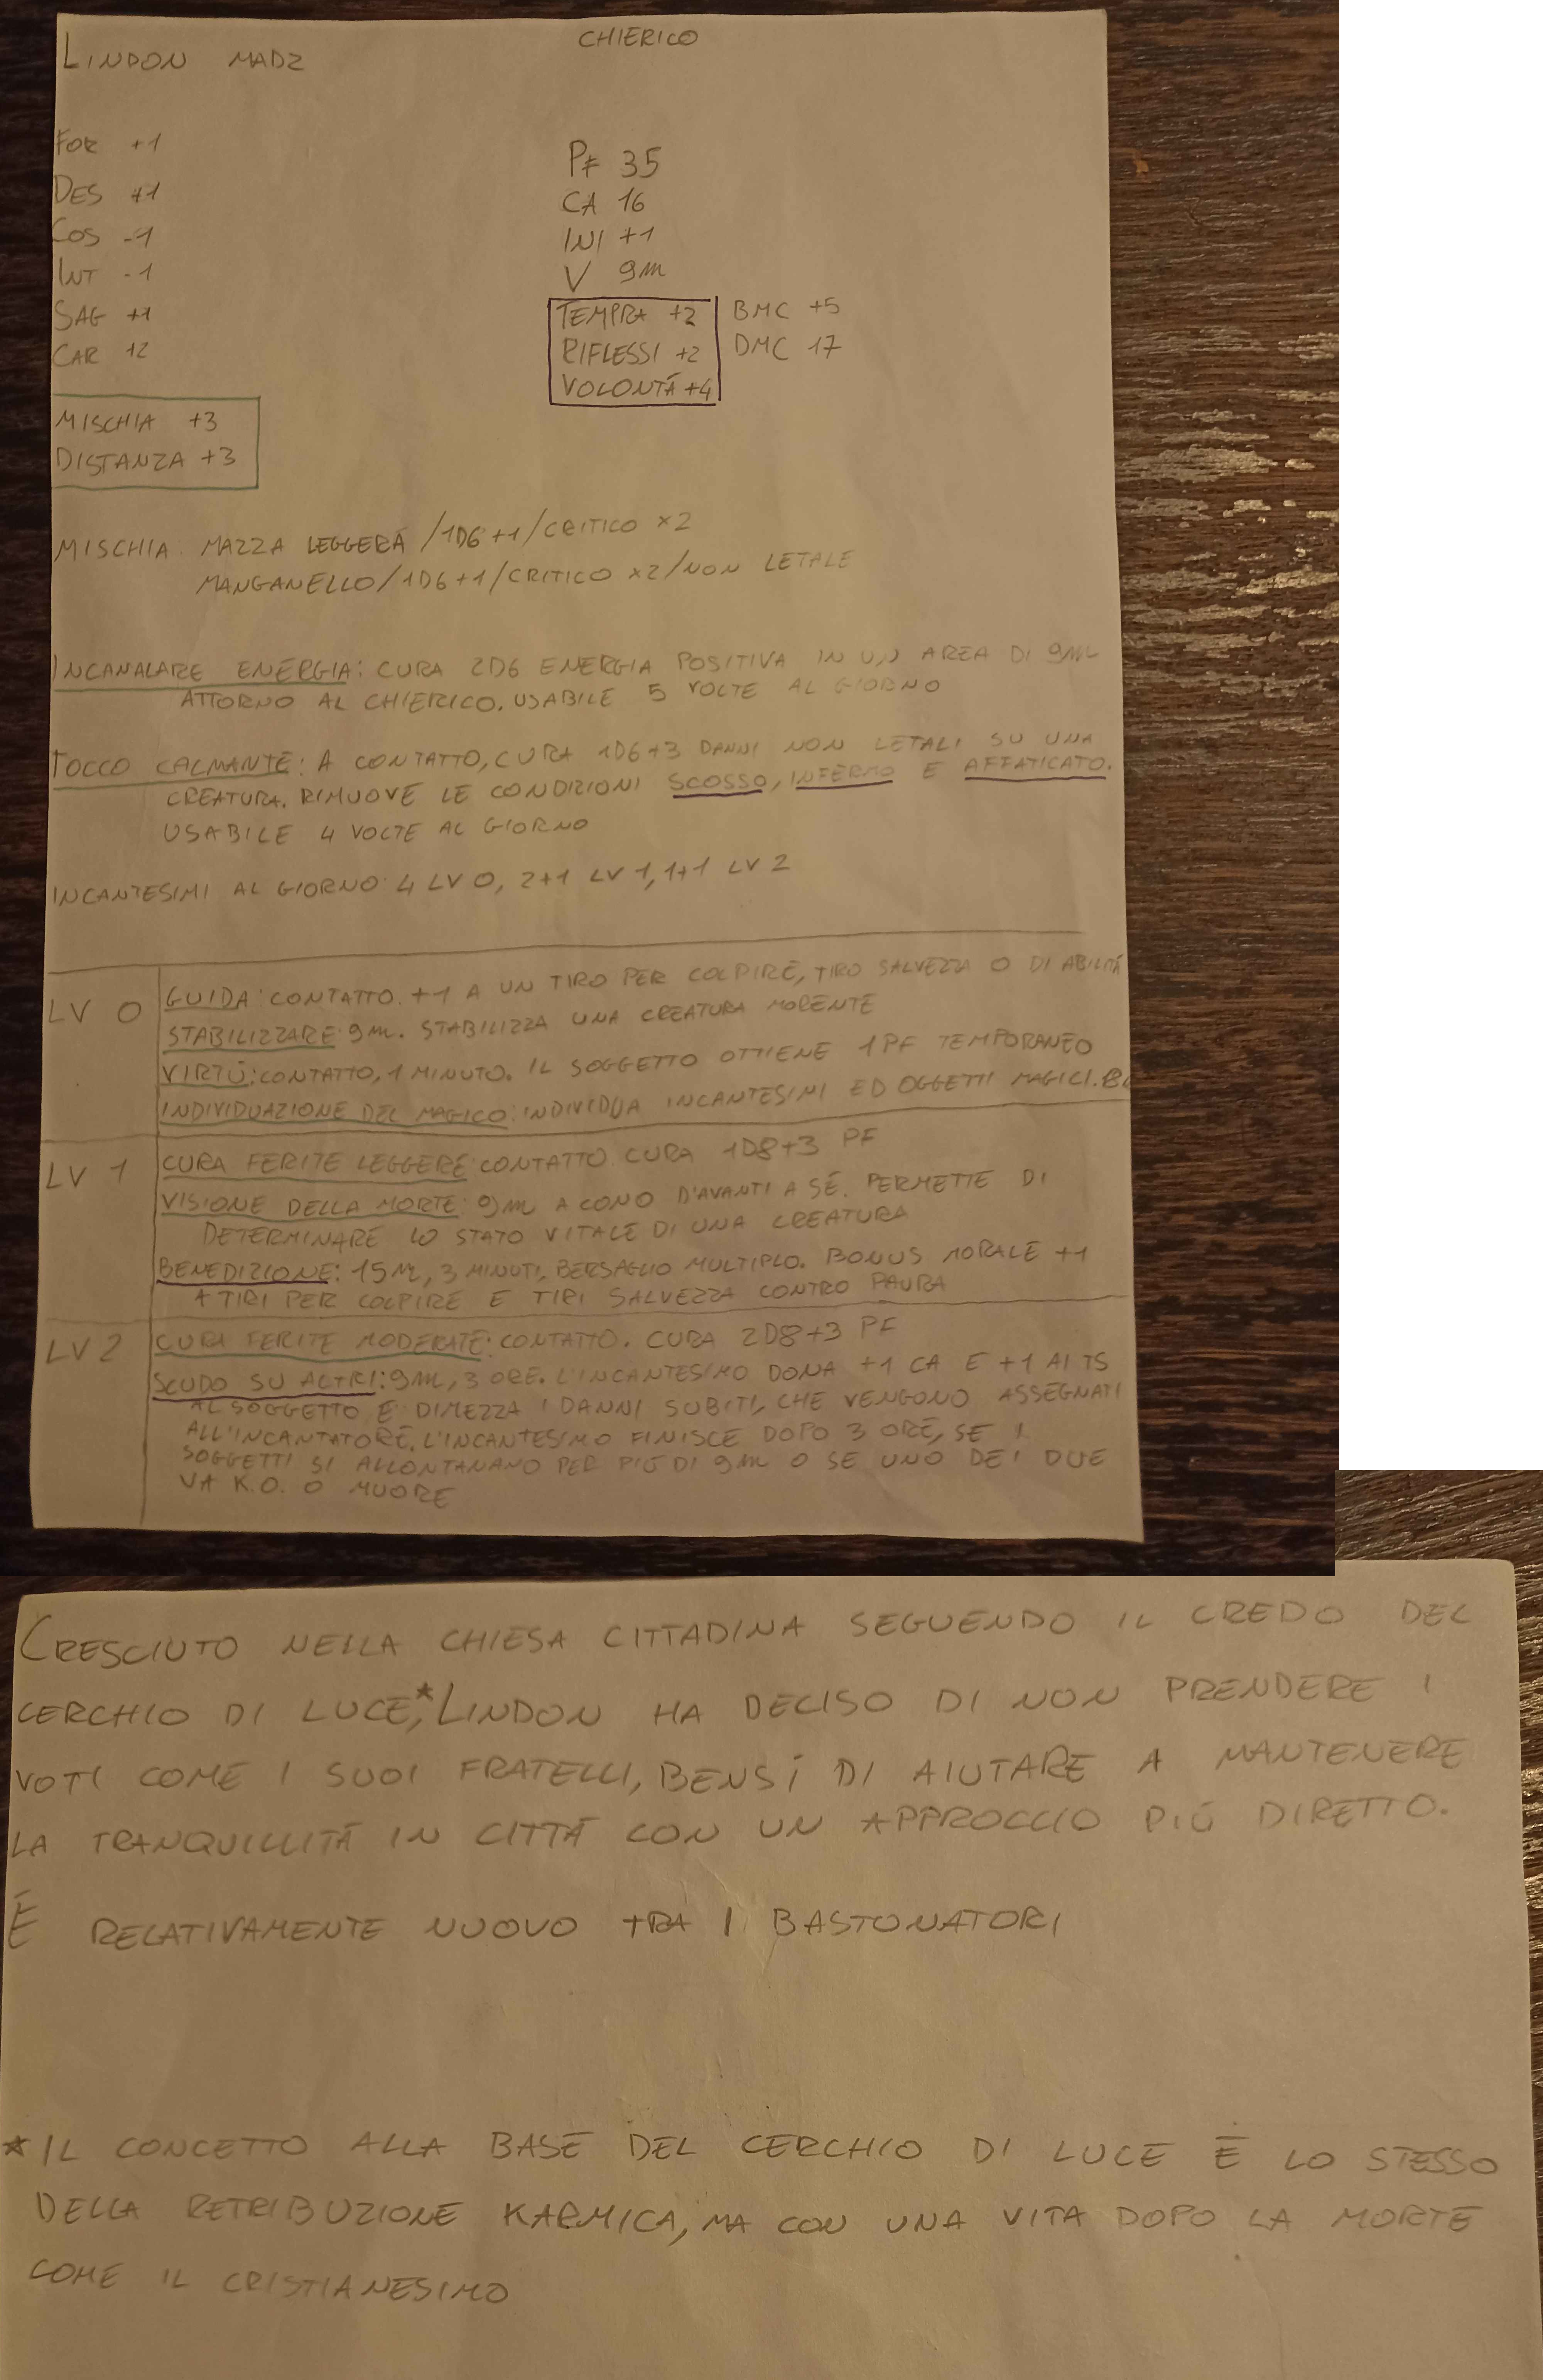 LINDON MADZ
CHIERICO
FOR +1
DES +1
COS -1
INT -1
SAG +1
CAR +2
PF 35
CA 16
INI +1
V 9M
TEMPRA +2
RIFLESSI +2
VOLONTÁ +4
BMC +5
DMC 17
MISCHIA +3
DISTANZA +3
MISCHIA: MAZZA LEGGERA /1D6+1/CRITICO ×2
MANGANELLO/1D6+1/CRITICO ×2/NON LETALE
INCANALARE ENERGIA: CURA 2D6 ENERGIA POSITIVA IN UN AREA DI 9M
ATTORNO AL CHIERICO. USABILE 5 VOLTE AL GIORNO
TOCCO CALMANTE: A CONTATTO, CURA 1D6+3 DANNI NON LETALI SU UNA
CREATURA. RIMUOVE LE CONDIZIONI SCOSSO, INFERMO E AFFATICATO.
USABILE 4 VOLTE AL GIORNO
INCANTESIMI AL GIORNO: 4 LV 0, 2+1 LV 1, 1+1 LV 2
LV 0
GUIDA: CONTATTO. +1 A UN TIRO PER COLPIRE, TIRO SALVEZZA O DI ABILITÁ
STABILIZZARE: 9M. STABILIZZA UNA CREATURA MORENTE
VIRTÚ: CONTATTO, 1 MINUTO. IL SOGGETTO OTTIENE 1 PF TEMPORANEO
INDIVIDUAZIONE DEL MAGICO: INDIVIDUA INCANTESIMI ED OGGETTI MAGICI.
LV 1
CURA FERITE LEGGERE: CONTATTO. CURA 1D8+3 PF
VISIONE DELLA MORTE: 9M A CONO D'AVANTI A SÉ. PERMETTE DI
DETERMINARE LO STATO VITALE DI UNA CREATURA
BENEDIZIONE: 15M, 3 MINUTI, BERSAGLIO MULTIPLO. BONUS MORALE +1
A TIRI PER COLPIRE E TIRI SALVEZZA CONTRO PAURA
LV 2
CURA FERITE MODERATE: CONTATTO. CURA 2D8+3 PF
SCUDO SU ALTRI: 9M, 3 ORE. L'INCANTESIMO DONA +1 CA E +1 AI TS
AL SOGGETTO E DIMEZZA I DANNI SUBITI, CHE VENGONO ASSEGNATI
ALL'INCANTATORE. L'INCANTESIMO FINISCE DOPO 3 ORE, SE I
SOGGETTI SI ALLONTANANO PER PIÚ DI 9M O SE UNO DEI DUE
VA K.O. O MUORE
CRESCIUTO NELLA CHIESA CITTADINA SEGUENDO IL CREDO DEL
CERCHIO DI LUCE*, LINDON HA DECISO DI NON PRENDERE I
VOTI COME I SUOI FRATELLI, BENSÍ DI AIUTARE A MANTENERE
LA TRANQUILLITÁ IN CITTÁ CON UN APPROCCIO PIÚ DIRETTO.
É RELATIVAMENTE NUOVO TRA I BASTONATORI
* IL CONCETTO ALLA BASE DEL CERCHIO DI LUCE É LO STESSO
DELLA RETRIBUZIONE KARMICA, MA CON UNA VITA DOPO LA MORTE
COME IL CRISTIANESIMO